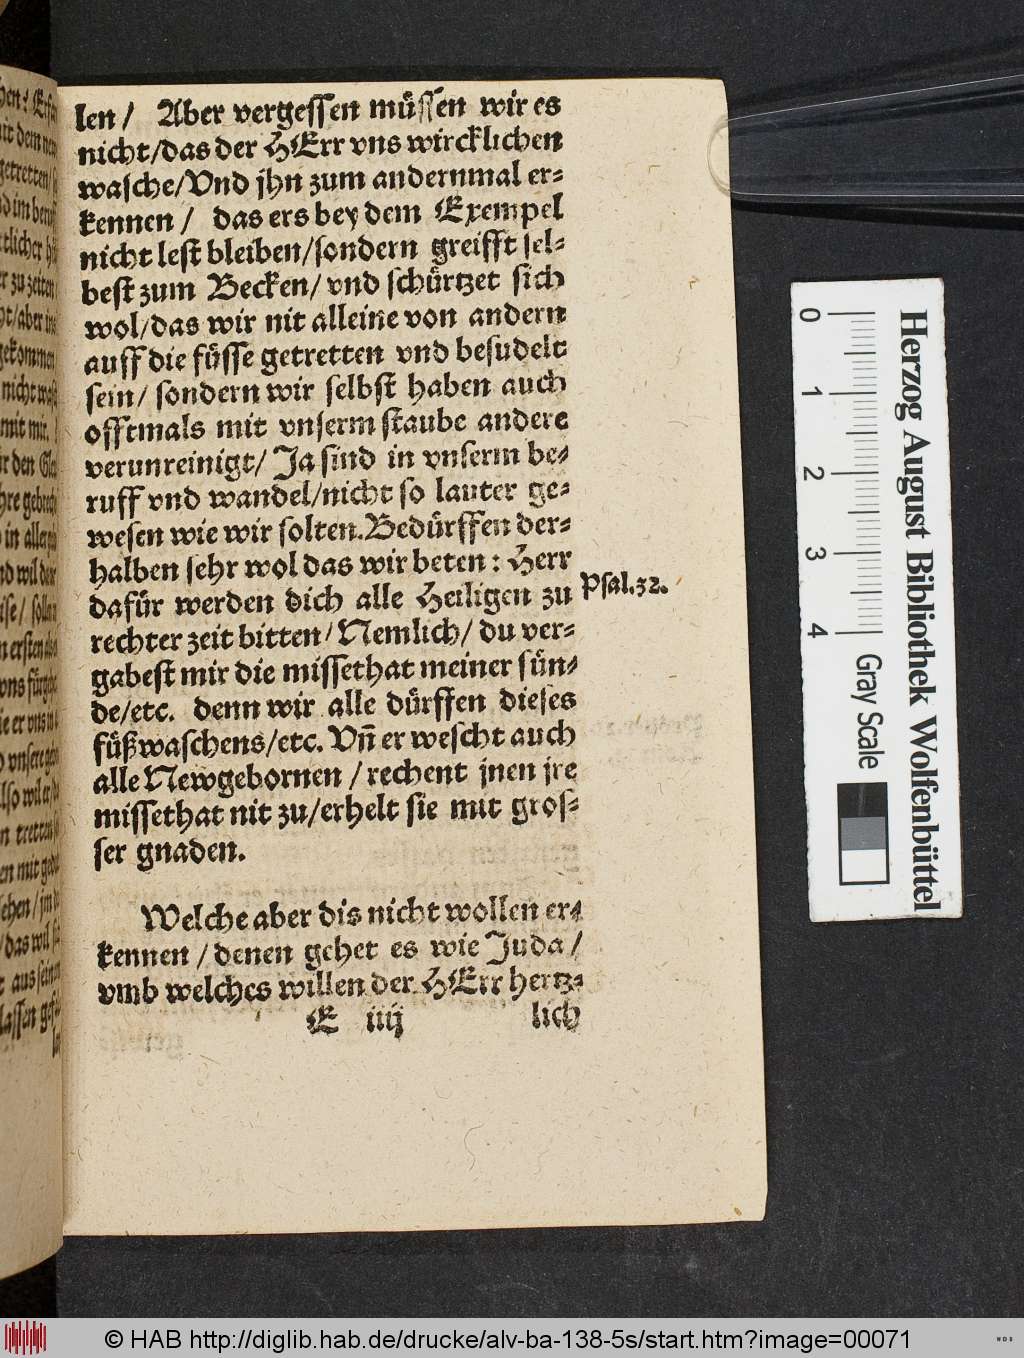 len / Aber vergessen müssen wir es
nicht/das der HErr vns wircklichen
wasche/Vnd jhn zum andernmal er-
kennen / das ers bey dem Exempel
nicht lest bleiben/sondern greifft sel-
best zum Becken/ vnd schürtzet sich
wol/das wir nit alleine von andern
auff die füsse getretten vnd besudelt
sein/ sondern wir selbst haben auch
offtmals mit vnserm staube andere
verunreinigt/ Ja sind in vnserm be-
ruff vnd wandel/nicht so lauter ge-
wesen wie wir solten. Bedürffen der-
halben sehr wol das wir beten: Herr
dafür werden dich alle Heiligen zu
Psal.32.
rechter zeit bitten/ Nemlich/ du ver-
gabest mir die missethat meiner sün-
de/etc. denn wir alle dürffen dieses
füßwaschens/etc. Vñ er wescht auch
alle Newgebornen / rechent jnen jre
missethat nit zu/erhelt sie mit gros-
ser gnaden.
Welche aber dis nicht wollen er-
kennen / denen gehet es wie Juda /
vmb welches willen der HErr hertz-
E iiij lich
0 1 2 3 4
Gray Scale
Herzog August Bibliothek Wolfenbüttel
© HAB http://diglib.hab.de/drucke/alv-ba-138-5s/start.htm?image=00071